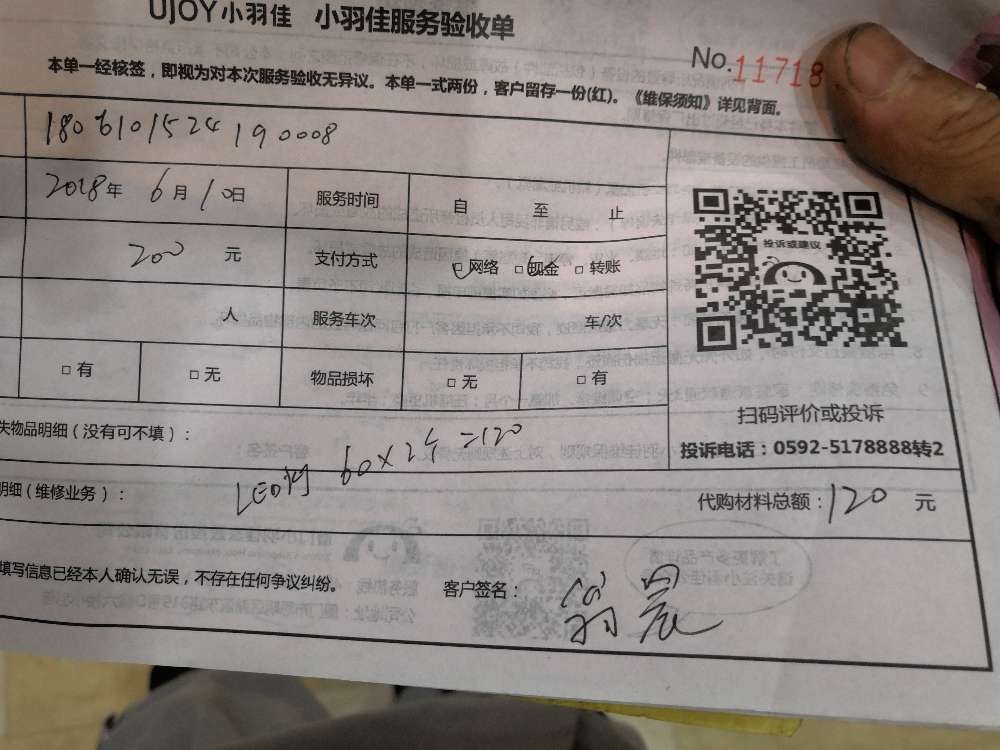 UJOY小羽佳 小羽佳服务验收单
No.11718
本单一经核签，即视为对本次服务验收无异议。本单一式两份，客户留存一份(红)。《维保须知》详见背面。
180610152419 0008
2018年 6月10日 服务时间 自 至 止
200 元 支付方式 □网络 □现金 □转账
人 服务车次 车/次
□有 □无 物品损坏 □无 □有
投诉或建议
扫码评价或投诉
投诉电话：0592-5178888转2
失物品明细（没有可不填）：
明细（维修业务）： LED灯 60×2个=120
代购材料总额：120 元
填写信息已经本人确认无误，不存在任何争议纠纷。 客户签名：